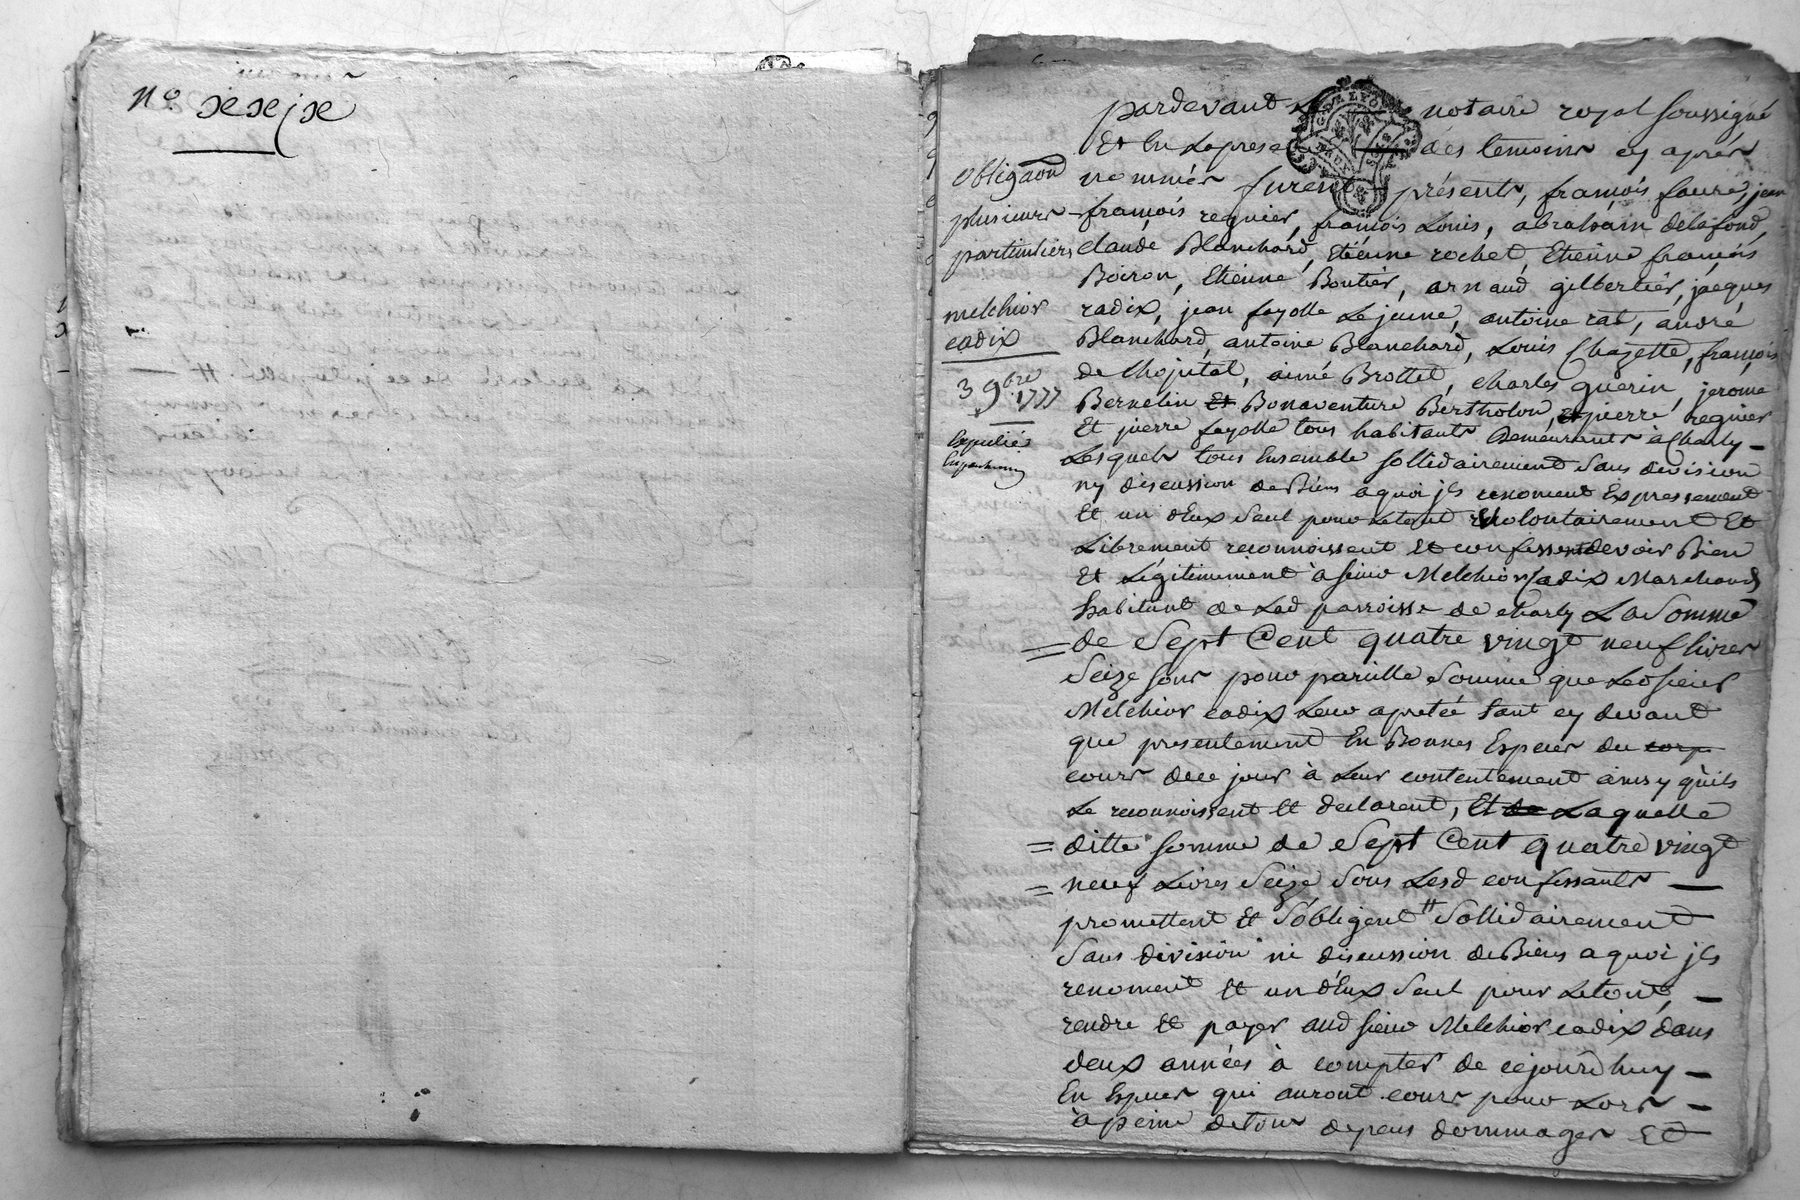 n.o xexjxe
obligaon
plusieurs
particuliers
melchior
cadix
3 9bre 1777
Expedié
pardevant Le notaire royal soussigné
Et En La presen des temoins cy après
nommés furent présents, françois faure, jean
françois regnier, françois Louis, abraham delafond,
claude Blanchard, Etienne rochet, Etienne françois
Boiron, Etienne Boutier, arnaud gilbertier, jacques
radix, jean fayolle Lejeune, antoine rat, andré
Blanchard, antoine Blanchard, Louis Chazette, françois
de Lhopital, aimé Brottet, Charles guerin, jerome
Bernelin Et Bonaventure Bertholon, et pierre regnier
Et pierre fayolle tous habitants Demeurants à Charly
Lesquels tous Ensemble sollidairement sans division
ny discussion de Biens a quoi jls renoncent Expressement
Et un dEux seul pour Letout volontairement Et
Librement reconnoissent Et confessent devoir Bien
Et Légitimement à sieur Melchior Cadix Marchand
habitant de Lad parroisse de Charly La Somme
de Sept Cent quatre vingt neuf livres
Seize sous pour pareille Somme que Led sieur
Melchior cadix Leur a preté tant cy devant
que presentement En Bonnes Especes du corp
cours de ce jour à Leur contentement ainsy quils
Le reconnoissent Et declarent, Et de Laquelle
ditte somme de Sept Cent quatre vingt
neuf Livres Seize Sous Lesd confessants
promettent Et S'obligent Sollidairement
Sans division ni discussion de Biens a quoi jls
renoncent Et un d'Eux Seul pour Letout,
rendre Et payer aud sieur Melchior cadix dans
deux années à compter de cejourdhuy
En Especes qui auront cours pour Lors
à peine de tous depens dommages Et